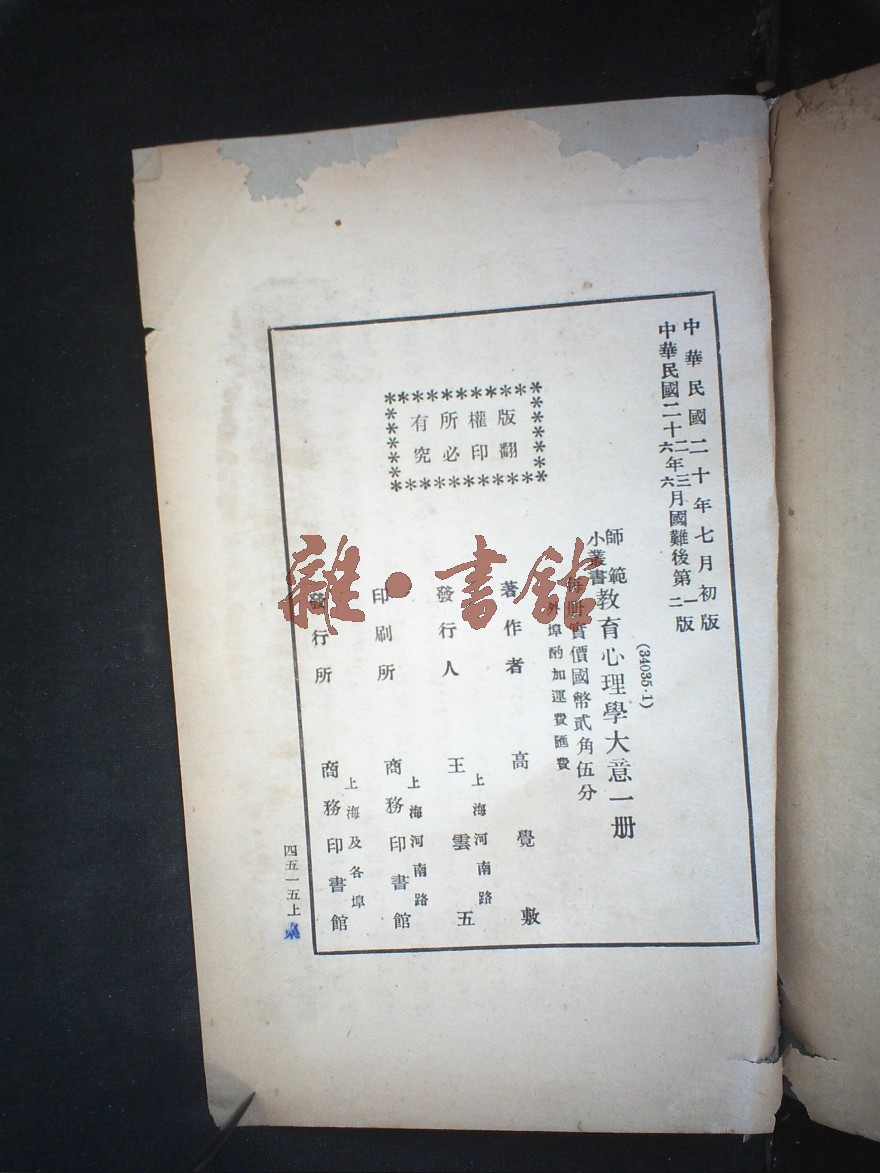 中華民國二十年七月初版
中華民國二十二年三月國難後第一版
六 六 二
(34035·1)
師範小叢書 教育心理學大意一册
每册實價國幣貳角伍分
外埠酌加運費匯費
版權所有
翻印必究
著作者 高覺敷
發行人 王雲五
上海河南路
印刷所 商務印書館
上海河南路
發行所 商務印書館
上海及各埠
四五一五上
雜·書館